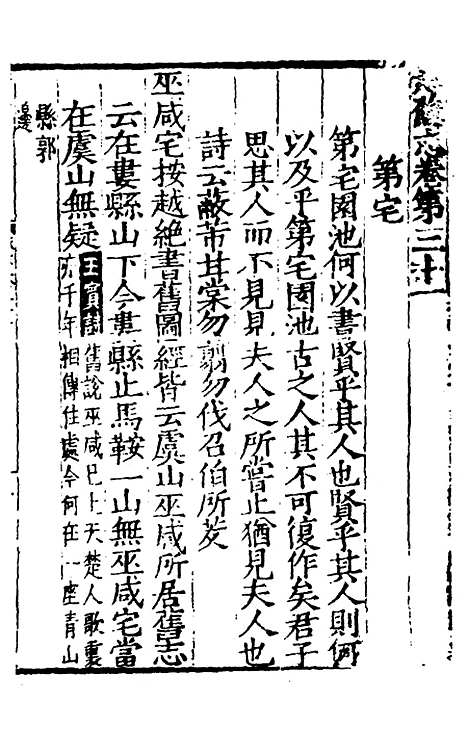 志卷第三十
第宅
第宅園池何以書賢乎其人也賢乎其人則何
以及乎第宅園池古之人其不可復作矣君子
思其人而不見見夫人之所嘗止猶見夫人也
詩云蔽芾甘棠勿翦勿伐召伯所茇
巫咸宅按越絶書舊圖經皆云虞山巫咸所居舊志
云在婁縣山下今婁縣止馬鞍一山無巫咸宅當
在虞山無疑王賓詩舊說巫咸已上天楚人歌裏
亦千年相傳住處今何在一座青山
縣郭
邊